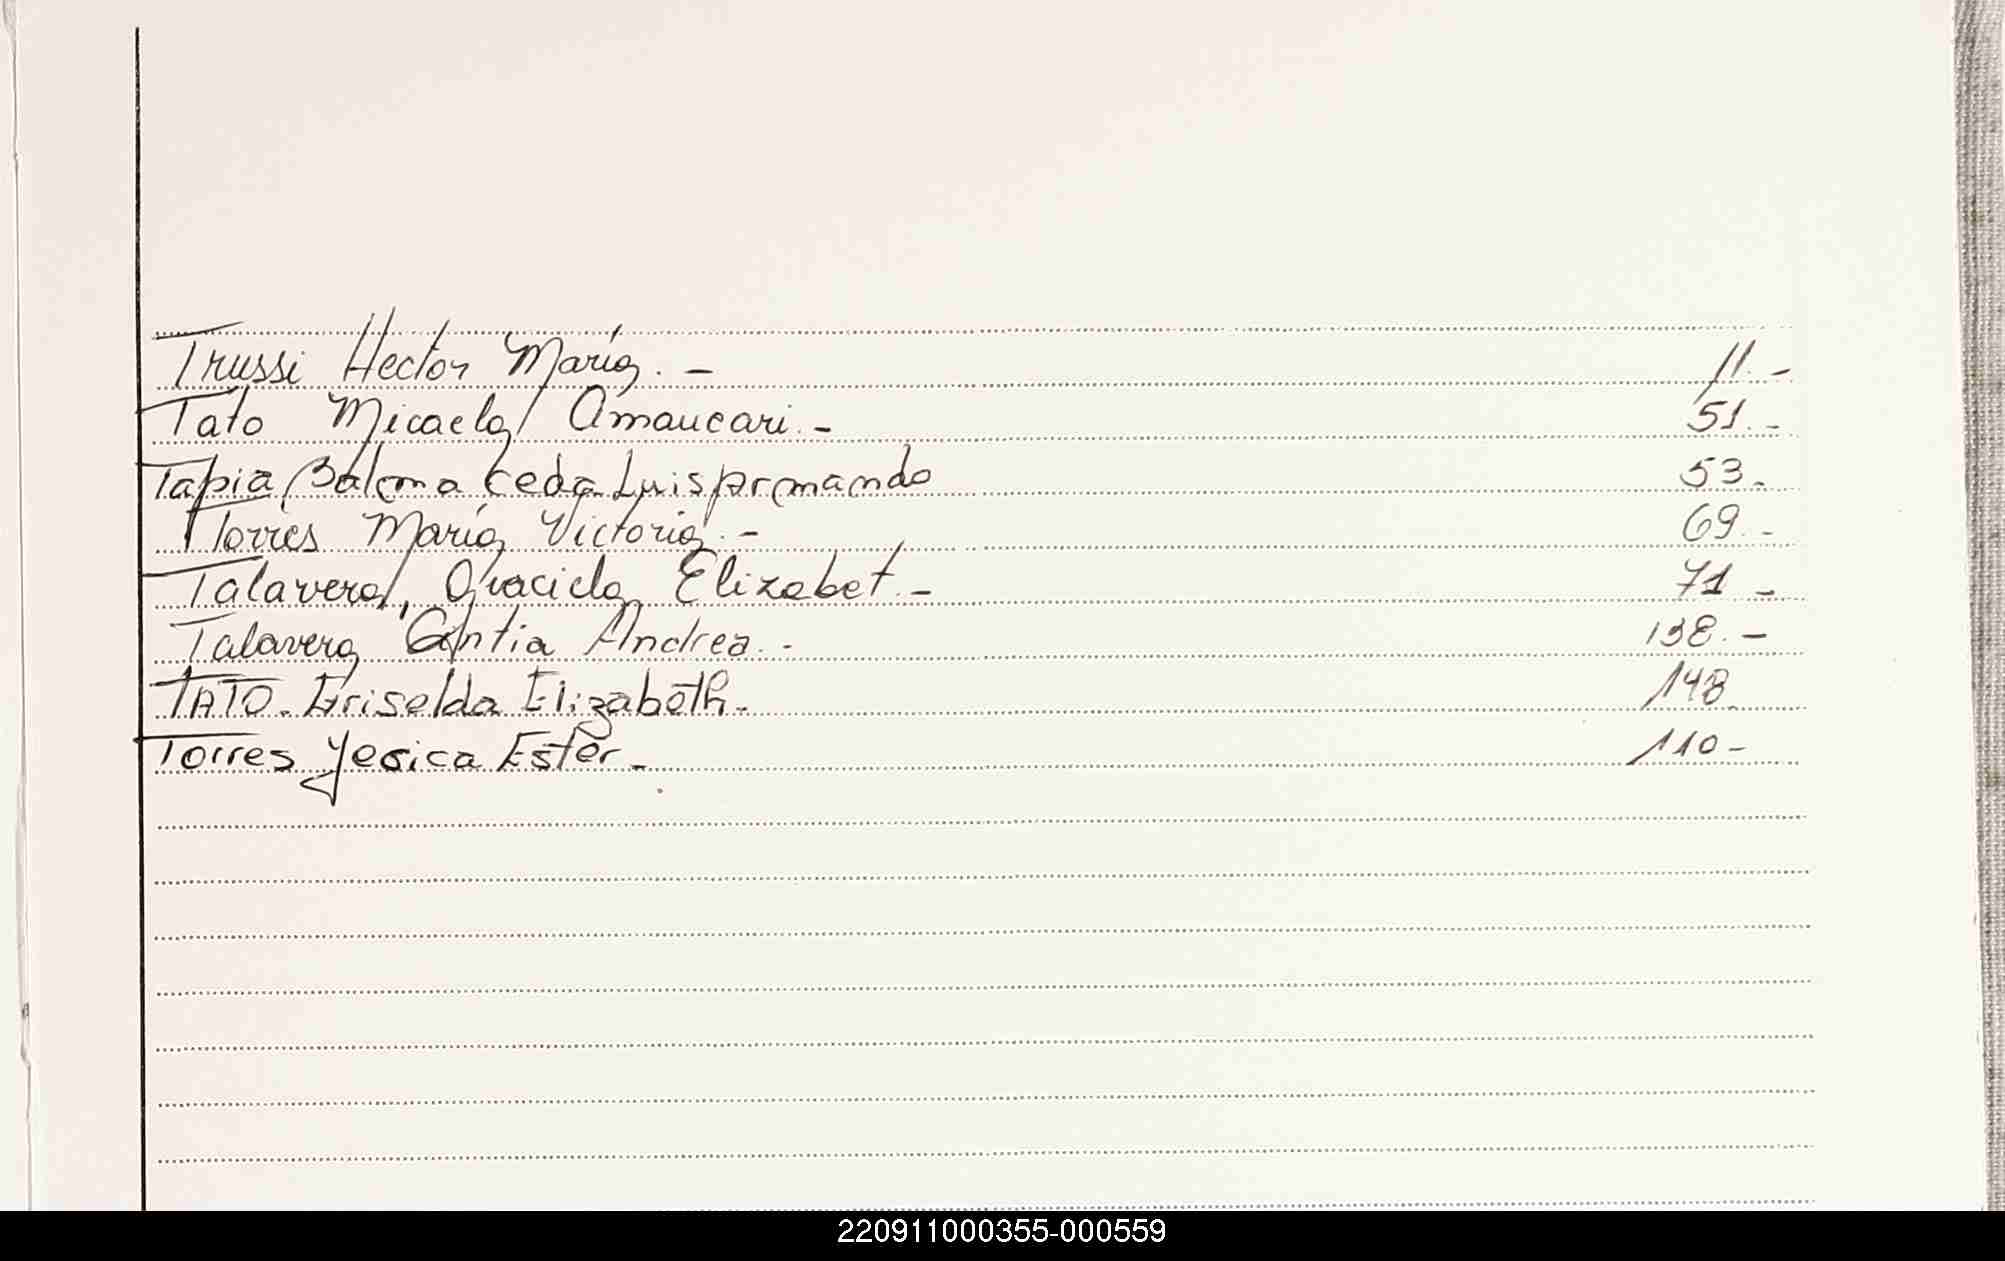 Trussi Hector María. - 11. -
Tato Micaela Amaucari. - 51. -
Tapia, Luis Armando 53. -
Torres María Victoria. - 69. -
Talavera, Graciela Elizabet. - 71 -
Talavera Cintia Andrea. - 138. -
TATO. Griselda Elizabeth. 148.
Torres Yesica Ester. - 110 -
220911000355-000559